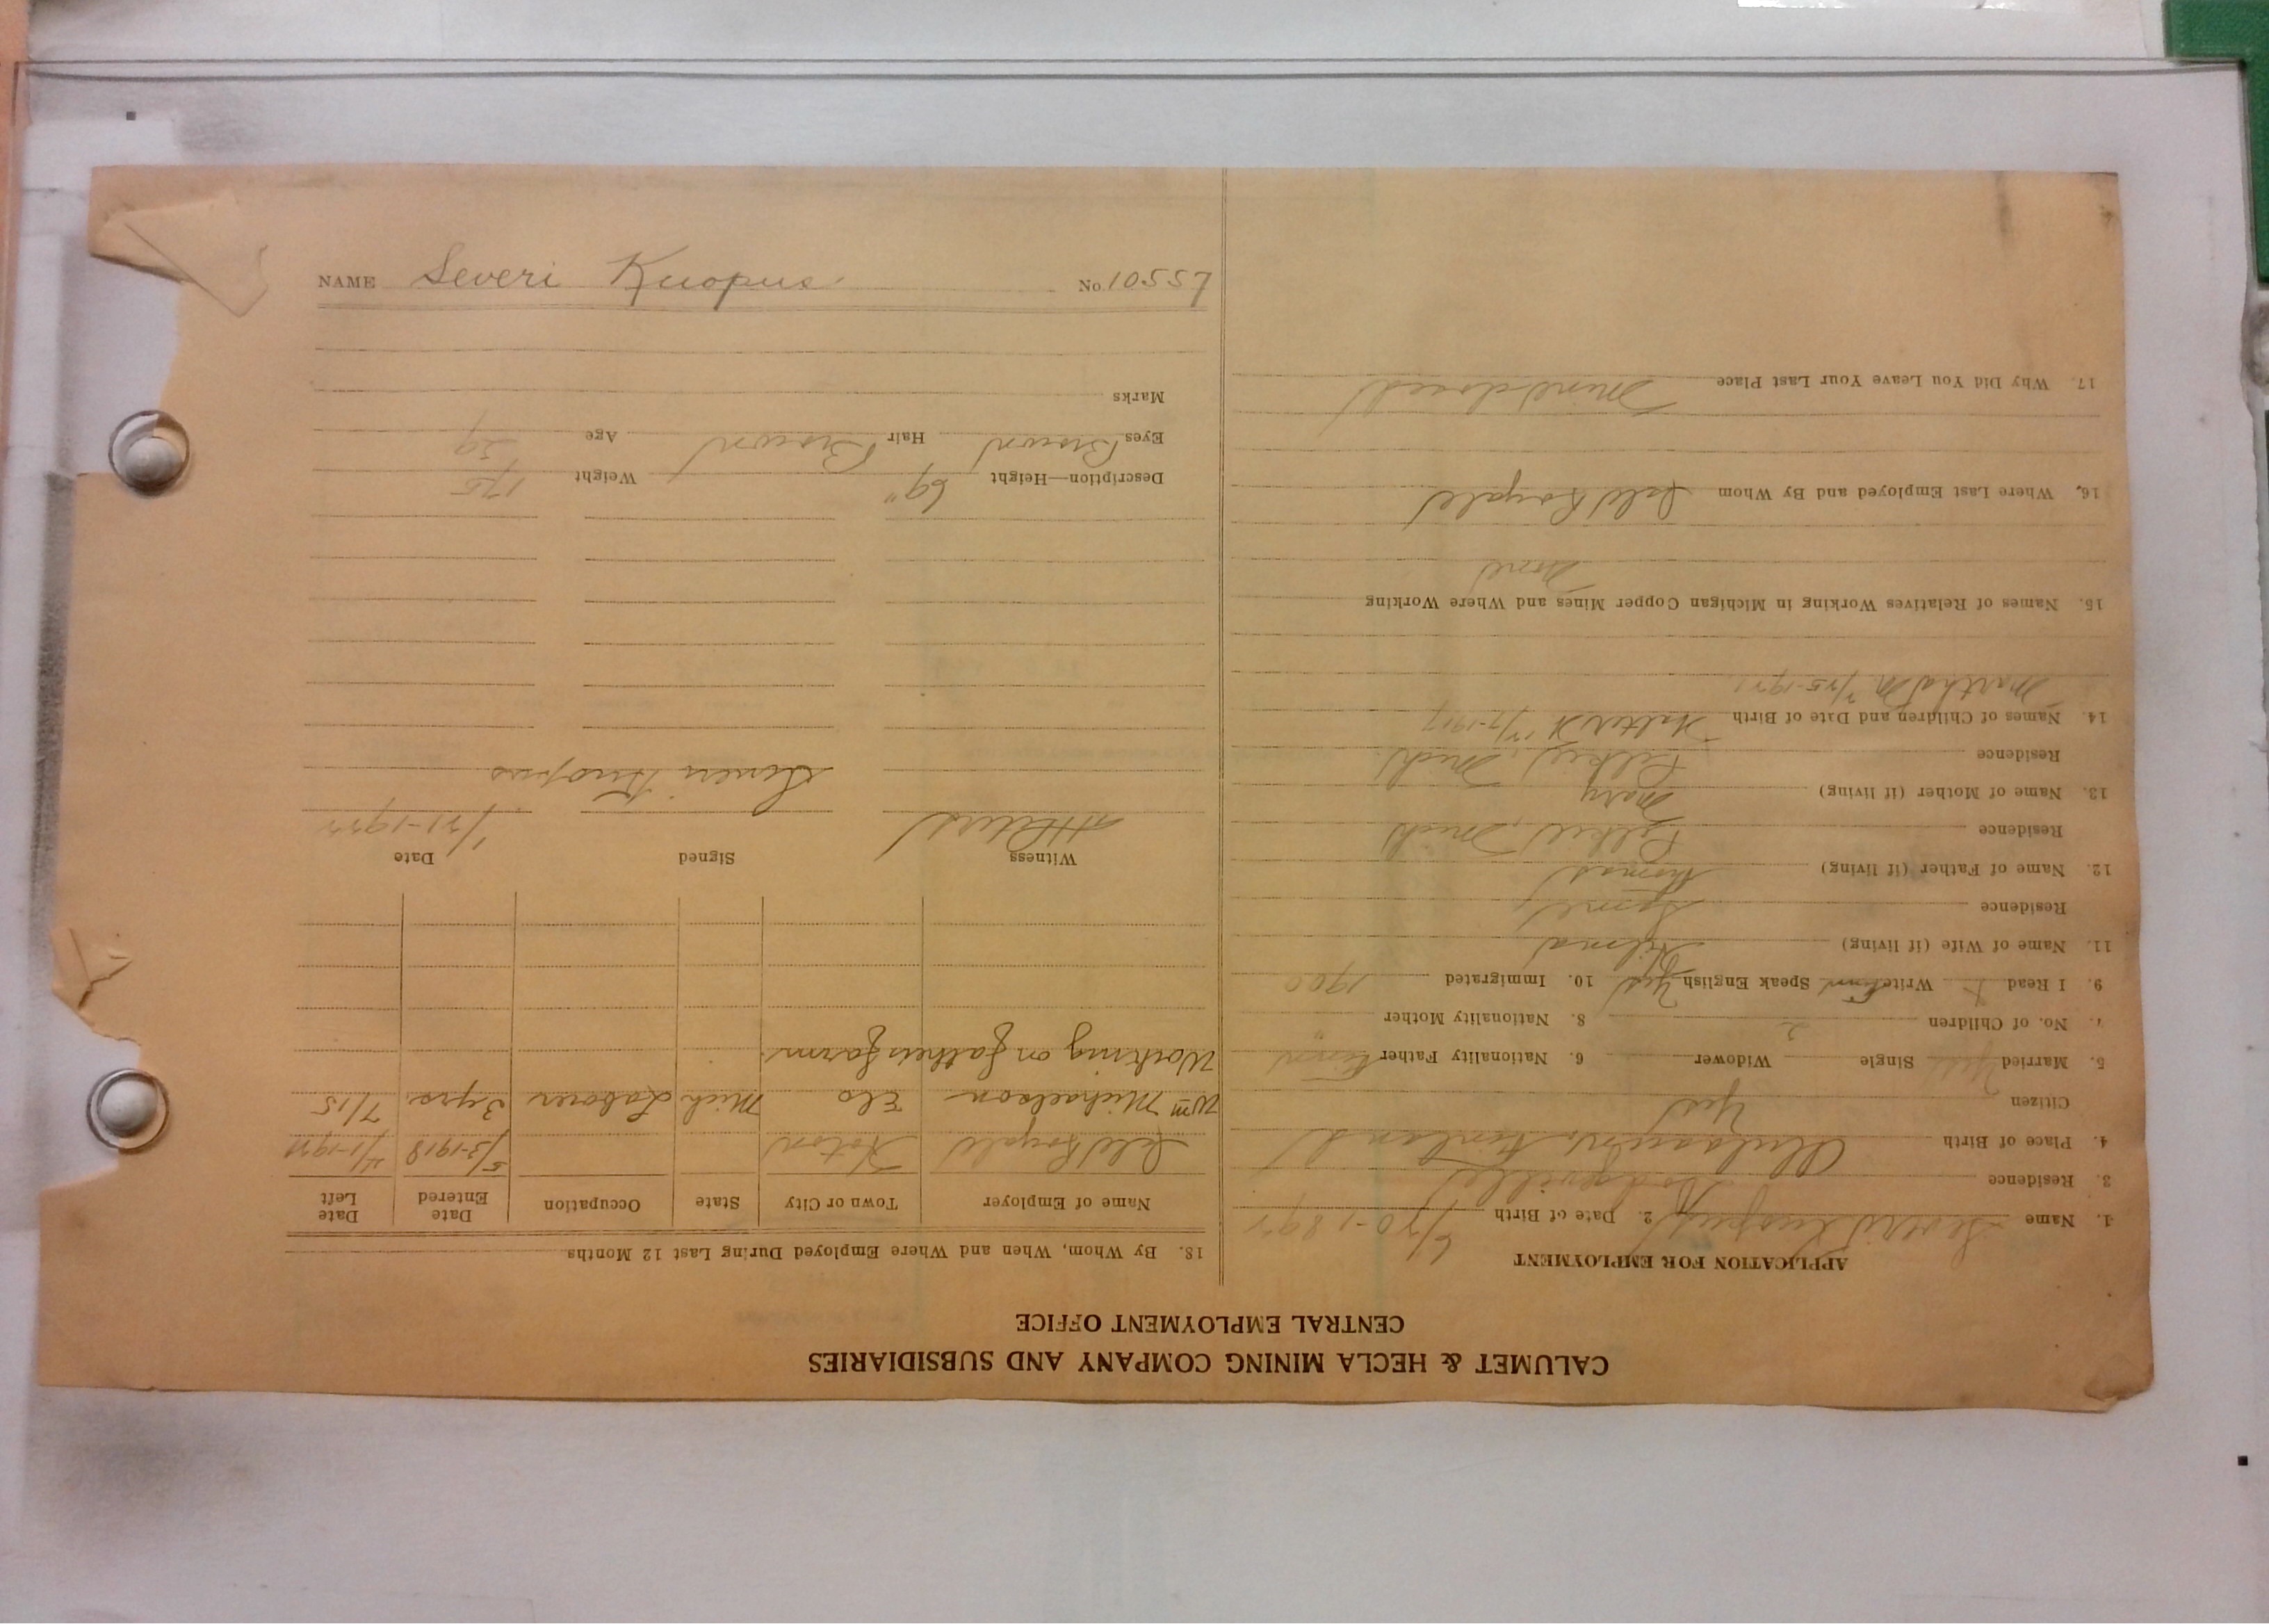 CALUMET & HECLA MINING COMPANY AND SUBSIDIARIES
CENTRAL EMPLOYMENT OFFICE
APPLICATION FOR EMPLOYMENT
1. Name Severi Kuopus 2. Date of Birth 5/20-1892
3. Residence Dodgeville
4. Place of Birth Finland
Citizen Yes
5. Married Yes Single Widower 6. Nationality Father Finn
7. No. of Children 2 8. Nationality Mother
9. I Read & Write Finn Speak English Yes 10. Immigrated 1900
11. Name of Wife (if living) Hilma
Residence Same
12. Name of Father (if living) Thomas
Residence Pelkie, Mich
13. Name of Mother (if living) Mary
Residence Pelkie, Mich
14. Names of Children and Date of Birth Walter H 12/7-1917
Martha M 2/25-1921
15. Names of Relatives Working in Michigan Copper Mines and Where Working
None
16. Where Last Employed and By Whom Isle Royale
17. Why Did You Leave Your Last Place Mine closed
18. By Whom, When and Where Employed During Last 12 Months
Name of Employer Town or City State Occupation Date Entered Date Left
Isle Royale Hoton 5/3-1918 4/1-1921
Wm Michaelson Elo Mich Laborer 3 yrs. 7/15
Working on fathers farm.
Witness Signed Date
Severi Kuopus 1/21-1922
Description—Height 69" Weight 175
Eyes Brown Hair Brown Age 29
Marks
NAME Severi Kuopus No. 10557